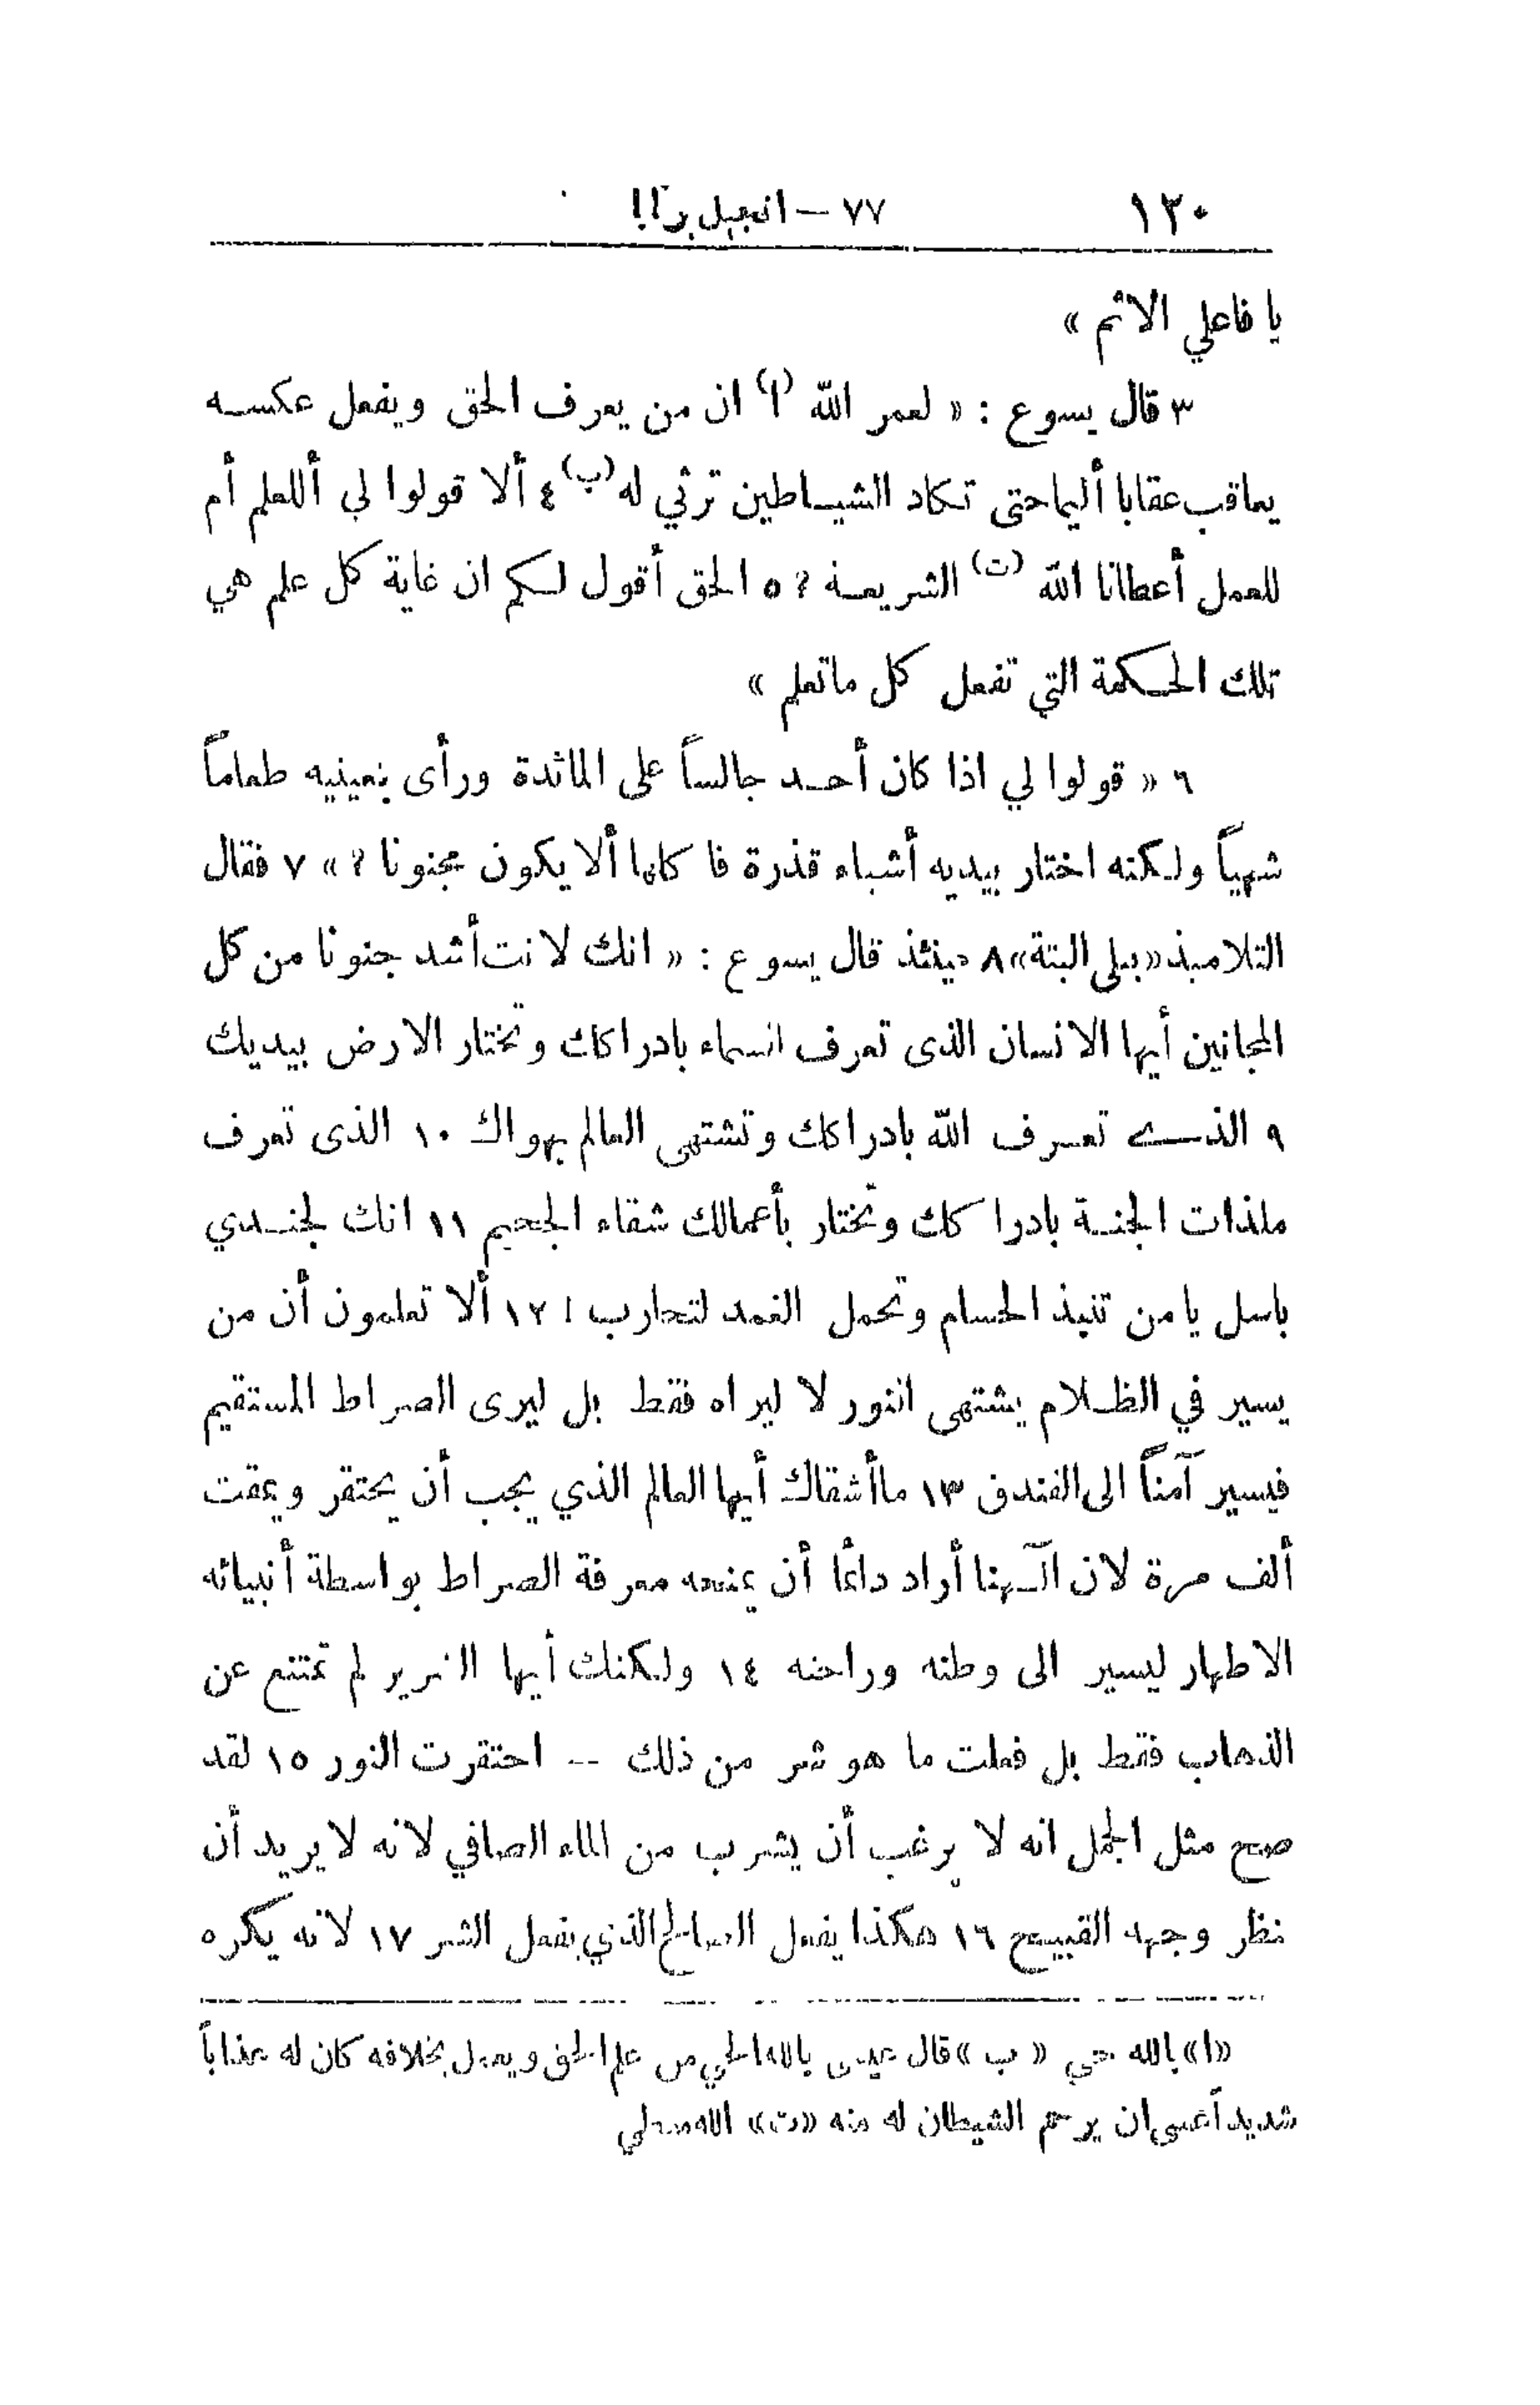 ١٢٠
٧٧ — انجيل برنابا
يا فاعلي الاثم »
٣ قال يسوع : « لعمر الله (ا) ان من يعرف الحق ويفعل عكسه
يعاقب عقابا أليما حتى تكاد الشياطين ترثي له (ب) ٤ ألا قولوا لي أللعلم أم
للعمل أعطانا الله (ت) الشريعة ؟ ٥ الحق أقول لكم ان غاية كل علم هي
تلك الحكمة التي تفعل كل ماتعلم »
٦ « قولوا لي اذا كان أحد جالساً على المائدة ورأى بعينيه طعاماً
شهياً ولكنه اختار بيديه أشياء قذرة فا كلها ألا يكون مجنونا ؟ » ٧ فقال
التلاميذ «بلى البتة» ٨ حينئذ قال يسوع : « انك لانت أشد جنونا من كل
المجانين أيها الانسان الذى تعرف السماء بادراكك وتختار الارض بيديك
٩ الذي تعرف الله بادراكك وتشتهى العالم بهواك ١٠ الذى تعرف
ملذات الجنة بادراكك وتختار بأعمالك شقاء الجحيم ١١ انك لجندي
باسل يا من تنبذ الحسام وتحمل الغمد لتحارب ! ١٢ ألا تعلمون أن من
يسير في الظلام يشتهى النور لا ليراه فقط بل ليرى الصراط المستقيم
فيسير آمناً الى الفندق ١٣ ماأشقاك أيها العالم الذي يجب أن يحتقر ويمقت
ألف مرة لان آلهنا أراد دائما أن يمنحه معرفة الصراط بواسطة أنبيائه
الاطهار ليسير الى وطنه وراحته ١٤ ولكنك أيها الشرير لم تمتنع عن
الذهاب فقط بل فعلت ما هو شر من ذلك -- احتقرت النور ١٥ لقد
صح مثل الجمل انه لا يرغب أن يشرب من الماء الصافي لانه لا يريد أن
ينظر وجهه القبيح ١٦ هكذا يفعل الصالح الذي يفعل الشر ١٧ لانه يكره
«ا» بالله حي « ب » قال عيسى بالله الحي من علم الحق ويعمل بخلافه كان له عذاباً
شديداً عسى ان يرحم الشيطان له منه «ت» الله معطي